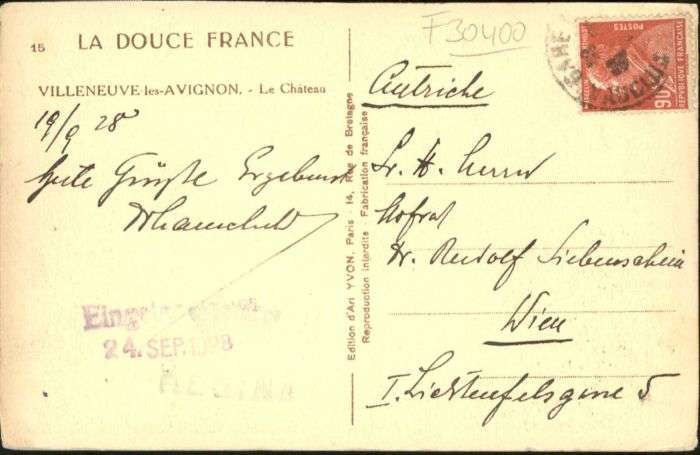 15 LA DOUCE FRANCE
VILLENEUVE-les-AVIGNON. - Le Château
19/9 28
Gute Grüße Ergebenst
Edition d'Art YVON, Paris - 14, Rue de Bretagne
Reproduction interdite Fabrication française
24. SEP. 1928
F30400
POSTES
90c
REPUBLIQUE FRANÇAISE
Autriche
Sr. H. Herrn
Hofrat
Dr. Rudolf Siebenschein
Wien
I. Lichtenfelsgasse 5